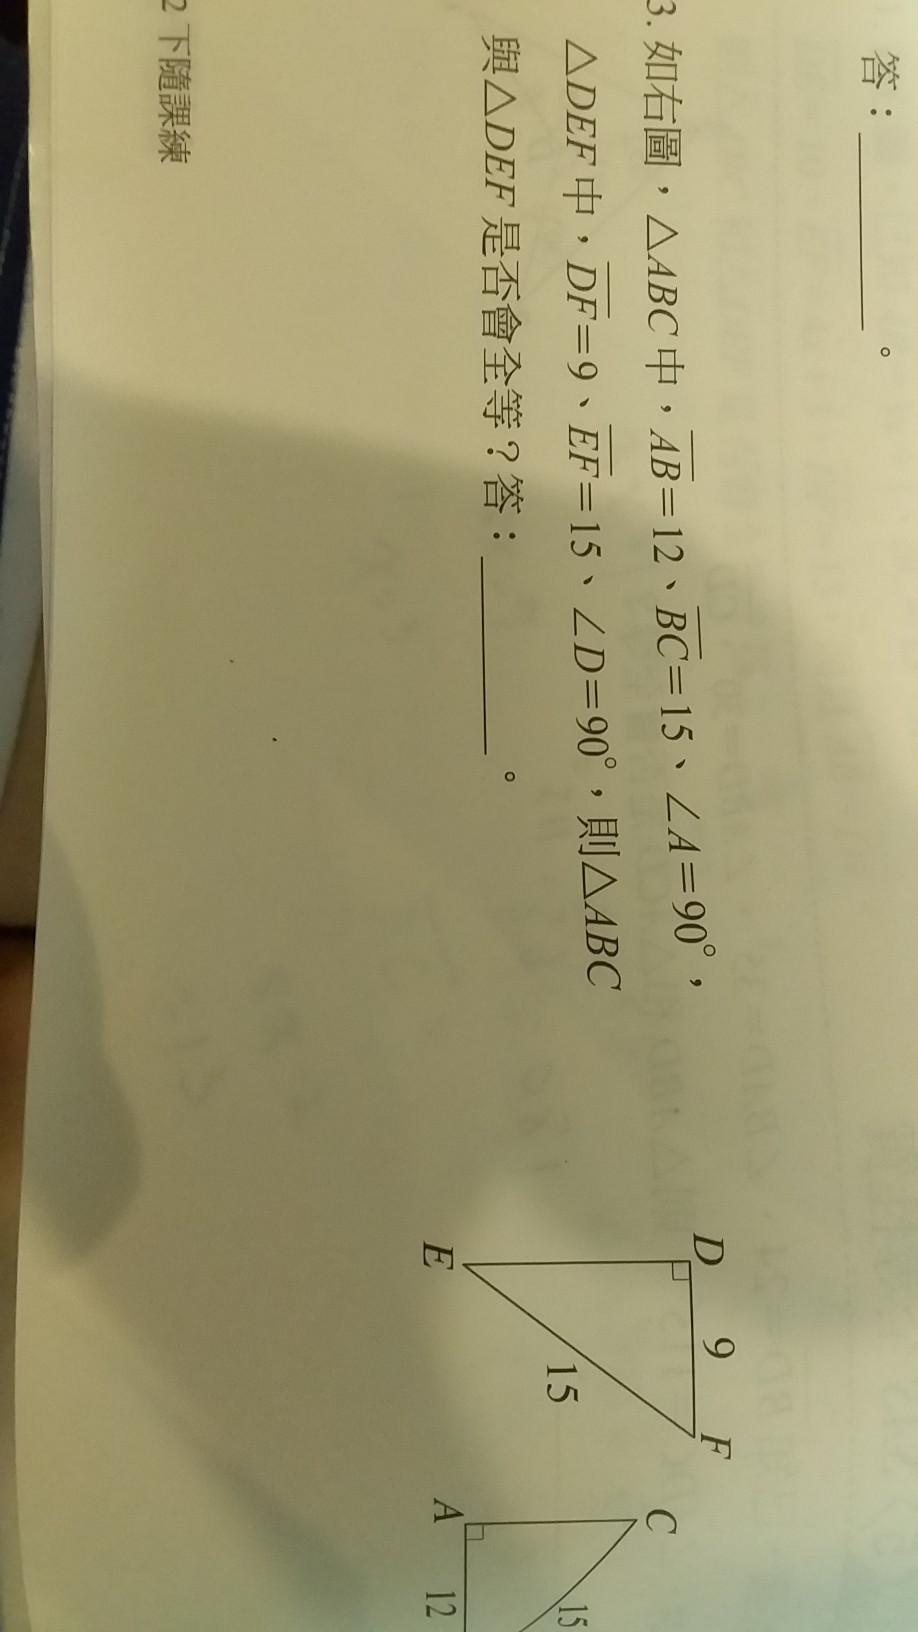 答：＿＿＿＿。
3. 如右圖，△ABC 中，AB=12、BC=15、∠A=90°，
△DEF 中，DF=9、EF=15、∠D=90°，則△ABC
與△DEF 是否會全等？答：＿＿＿＿。
D 9 F
E 15
C
A 12 15
2 下隨課練